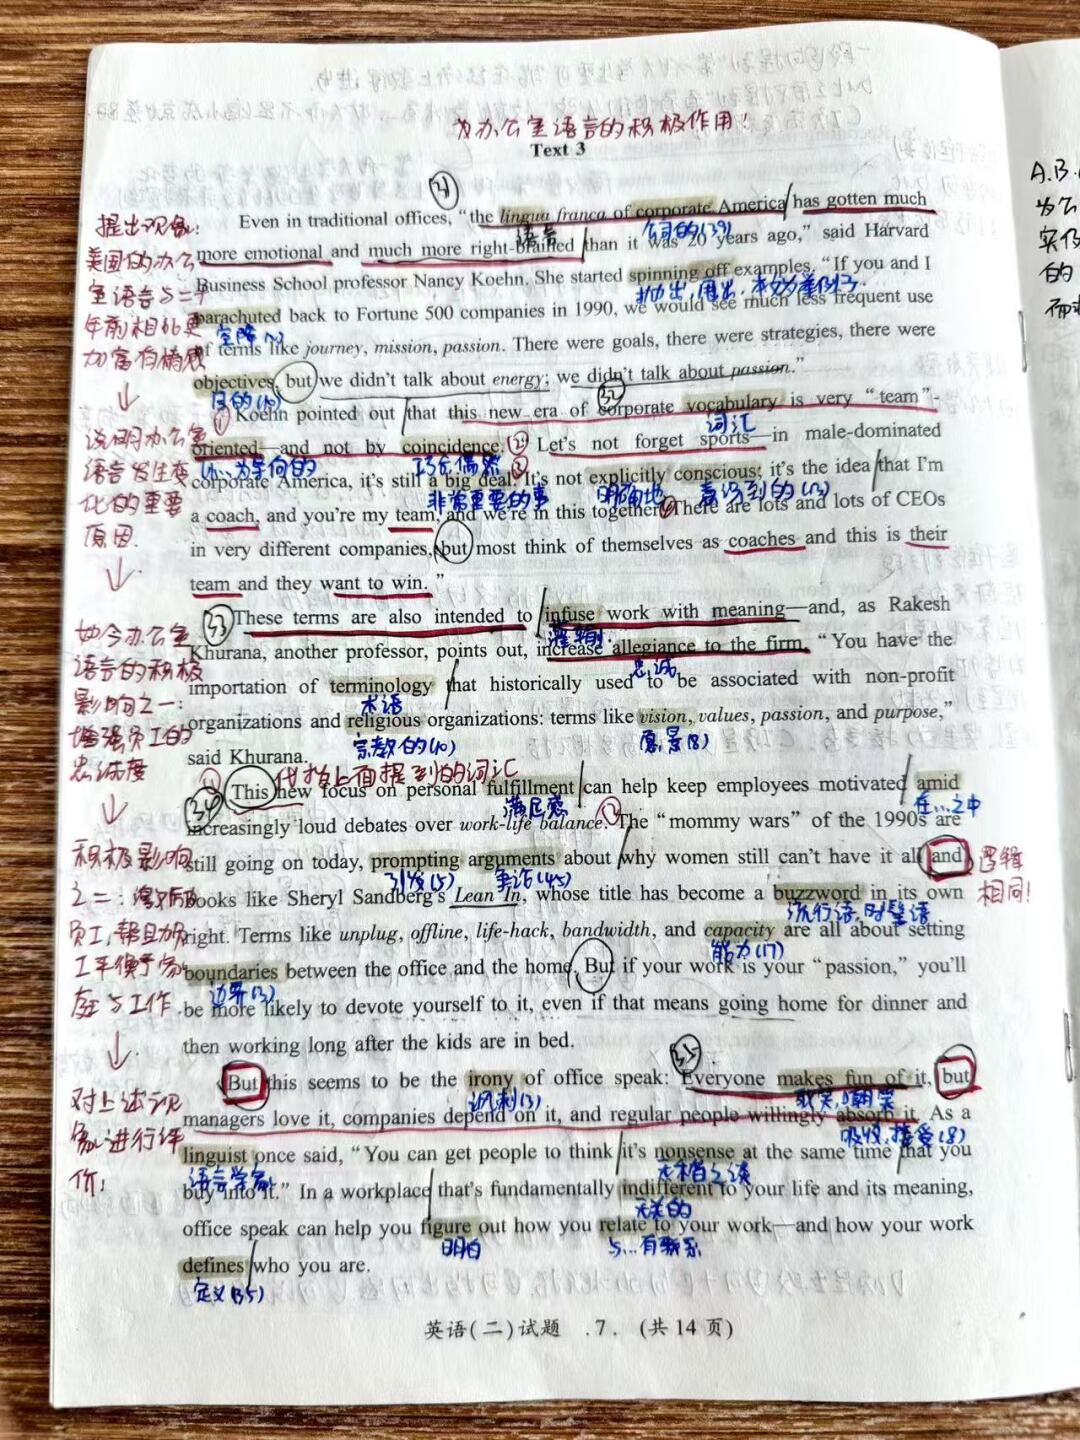 为办公室语言的积极作用!
Text 3
31
Even in traditional offices, “the lingua franca of corporate America has gotten much
语言
公司的(39)
more emotional and much more right-brained than it was 20 years ago,” said Harvard
Business School professor Nancy Koehn. She started spinning off examples. “If you and I
抛出,甩出.本文为举例子.
parachuted back to Fortune 500 companies in 1990, we would see much less frequent use
空降
of terms like journey, mission, passion. There were goals, there were strategies, there were
objectives, but we didn’t talk about energy; we didn’t talk about passion.”
目的(10)
32
① Koehn pointed out that this new era of corporate vocabulary is very “team”-
词汇
oriented—and not by coincidence. ② Let’s not forget sports—in male-dominated
以…为导向的
巧合,偶然
corporate America, it’s still a big deal. ③ It’s not explicitly conscious; it’s the idea that I’m
非常重要的事
明确地
意识到的(12)
a coach, and you’re my team, and we’re in this together. There are lots and lots of CEOs
in very different companies, but most think of themselves as coaches and this is their
team and they want to win.”
33 These terms are also intended to infuse work with meaning—and, as Rakesh
灌输
Khurana, another professor, points out, increase allegiance to the firm. “You have the
忠诚
importation of terminology that historically used to be associated with non-profit
术语
organizations and religious organizations: terms like vision, values, passion, and purpose,”
宗教的(10)
愿景(8)
said Khurana.
代指上面提到的词汇
34 ① This new focus on personal fulfillment can help keep employees motivated amid
满足感
在…之中
increasingly loud debates over work-life balance. ② The “mommy wars” of the 1990s are
still going on today, prompting arguments about why women still can’t have it all and
引发(5)
争论(45)
逻辑
相同!
books like Sheryl Sandberg’s Lean In, whose title has become a buzzword in its own
流行语,时髦语
right. Terms like unplug, offline, life-hack, bandwidth, and capacity are all about setting
能力(17)
boundaries between the office and the home. But if your work is your “passion,” you’ll
边界(3)
be more likely to devote yourself to it, even if that means going home for dinner and
then working long after the kids are in bed.
35
But this seems to be the irony of office speak: Everyone makes fun of it, but
讽刺(3)
取笑,嘲笑
managers love it, companies depend on it, and regular people willingly absorb it. As a
吸收,接受(8)
linguist once said, “You can get people to think it’s nonsense at the same time that you
语言学家
无稽之谈
buy into it.” In a workplace that’s fundamentally indifferent to your life and its meaning,
无关的
office speak can help you figure out how you relate to your work—and how your work
明白
与…有联系
defines who you are.
定义(35)
提出现象:
美国的办公
室语言与二十
年前相比更
加富有情感
↓
说明办公室
语言发生变
化的重要
原因.
↓
如今办公室
语言的积极
影响之一:
增强员工的
忠诚度
↓
积极影响
之二:
员工,帮且加
庭与工作.
↓
对上述现
象进行评
价:
英语(二)试题 .7. (共14页)
A.B.
为公
的